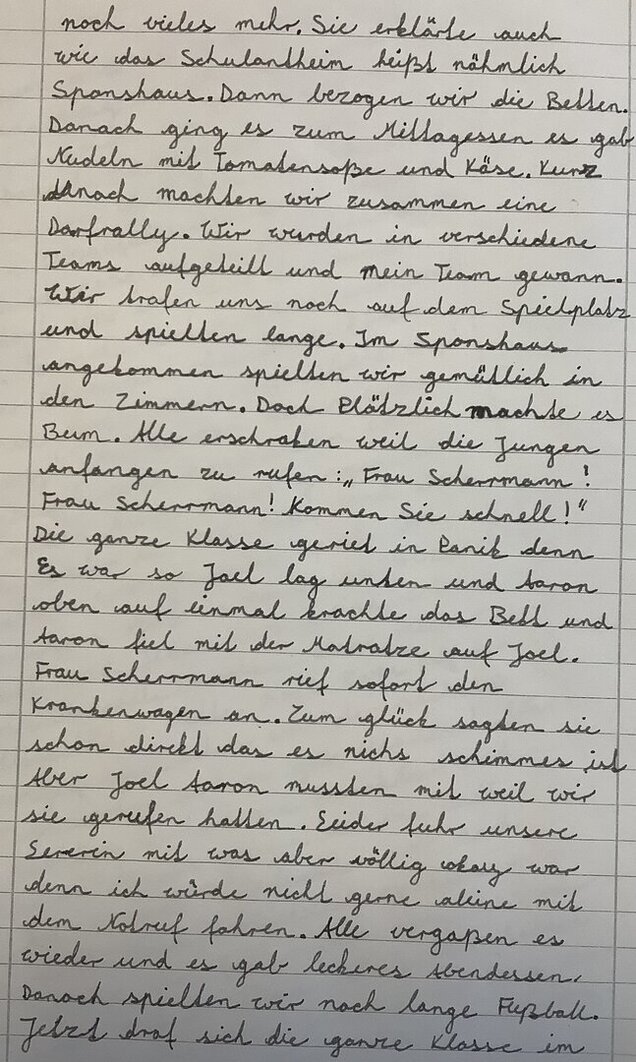 noch vieles mehr. Sie erklärte auch
wie das Schulandheim heißt nähmlich
Sponshaus. Dann bezogen wir die Betten.
Danach ging es zum Mittagessen es gab
Nudeln mit Tomatensoße und Käse. Kurz
danach machten wir zusammen eine
Darfrally. Wir wurden in verschiedene
Teams aufgeteilt und mein Team gewann.
Wir trafen uns noch auf dem Spielplatz
und spielten lange. Im Sponshaus
angekommen spielten wir gemütlich in
den Zimmern. Doch Plötzlich machte es
Bum. Alle erschraken weil die Jungen
anfangen zu rufen: „Frau Scherrmann!
Frau Scherrmann! Kommen Sie schnell!“
Die ganze Klasse geriet in Panik denn
Es war so Joel lag unten und Aaron
oben auf einmal krachte das Bett und
Aaron fiel mit der Matratze auf Joel.
Frau Scherrmann rief sofort den
Krankenwagen an. Zum glück sagten sie
schon direkt das es nichs schimmes ist
Aber Joel Aaron mussten mit weil wir
sie gerufen hatten. Leider fuhr unsere
mit was aber völlig okay war
denn ich würde nicht gerne aleine mit
dem Notruf fahren. Alle vergaßen es
wieder und es gab leckeres Abendessen.
Danach spielten wir noch lange Fußball.
Jetzt draf sich die ganze Klasse im